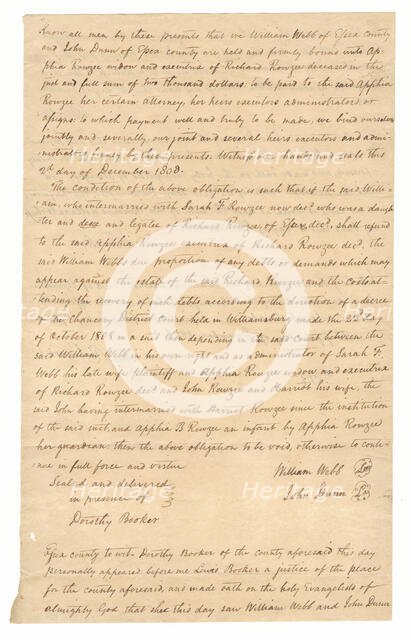 Know all men by these presents that we William Webb of Essex county
and John Dunn of Essex county are held and firmly bound unto Ap-
phia Rowzee widow and executrix of Richard Rowzee deceased in the
just and full sum of two thousand dollars; to be paid to the said Apphia
Rowzee her certain attorney, her heirs executors administrators or
assigns: to which payment well and truly to be made, we bind ourselves
jointly and severally, our joint and several heirs executors and admi-
nistrators firmly by these presents. Witness our hands and seals this
2d day of December 1808.
The condition of the above obligation is such that if the said Willi-
am, who intermarried with Sarah F. Rowzee now decd. who was a daugh-
ter and devisee and legatee of Richard Rowzee of Essex decd. shall refund
to the said Apphia Rowzee executrix of Richard Rowzee decd. the
said William Webb's due proportion of any debts or demands which may
appear against the estate of the said Richard Rowzee and the costs at-
tending the recovery of such debts according to the direction of a decree
of the Chancery District Court held in Williamsburg made the 22d day
of October 1808 in a suit then depending in the said Court between the
said William Webb in his own right and as administrator of Sarah F.
Webb his late wife plaintiff and Apphia Rowzee widow and executrix
of Richard Rowzee decd and John Rowzee and Harriot his wife, the
said John having intermarried with Harriot Rowzee since the institution
of the said suit, and Apphia B Rowzee an infant by Apphia Rowzee
her guardian: then the above obligation to be void, otherwise to conti-
nue in full force and virtue
Sealed and delivered
in presence of
Dorothy Booker
William Webb
John Dunn
Essex county to wit Dorothy Booker of the county aforesaid this day
personally appeared before me Lewis Booker a justice of the peace
for the county aforesaid, and made oath on the holy Evangelists of
almighty God that she this day saw William Webb and John Dunn
Heritage